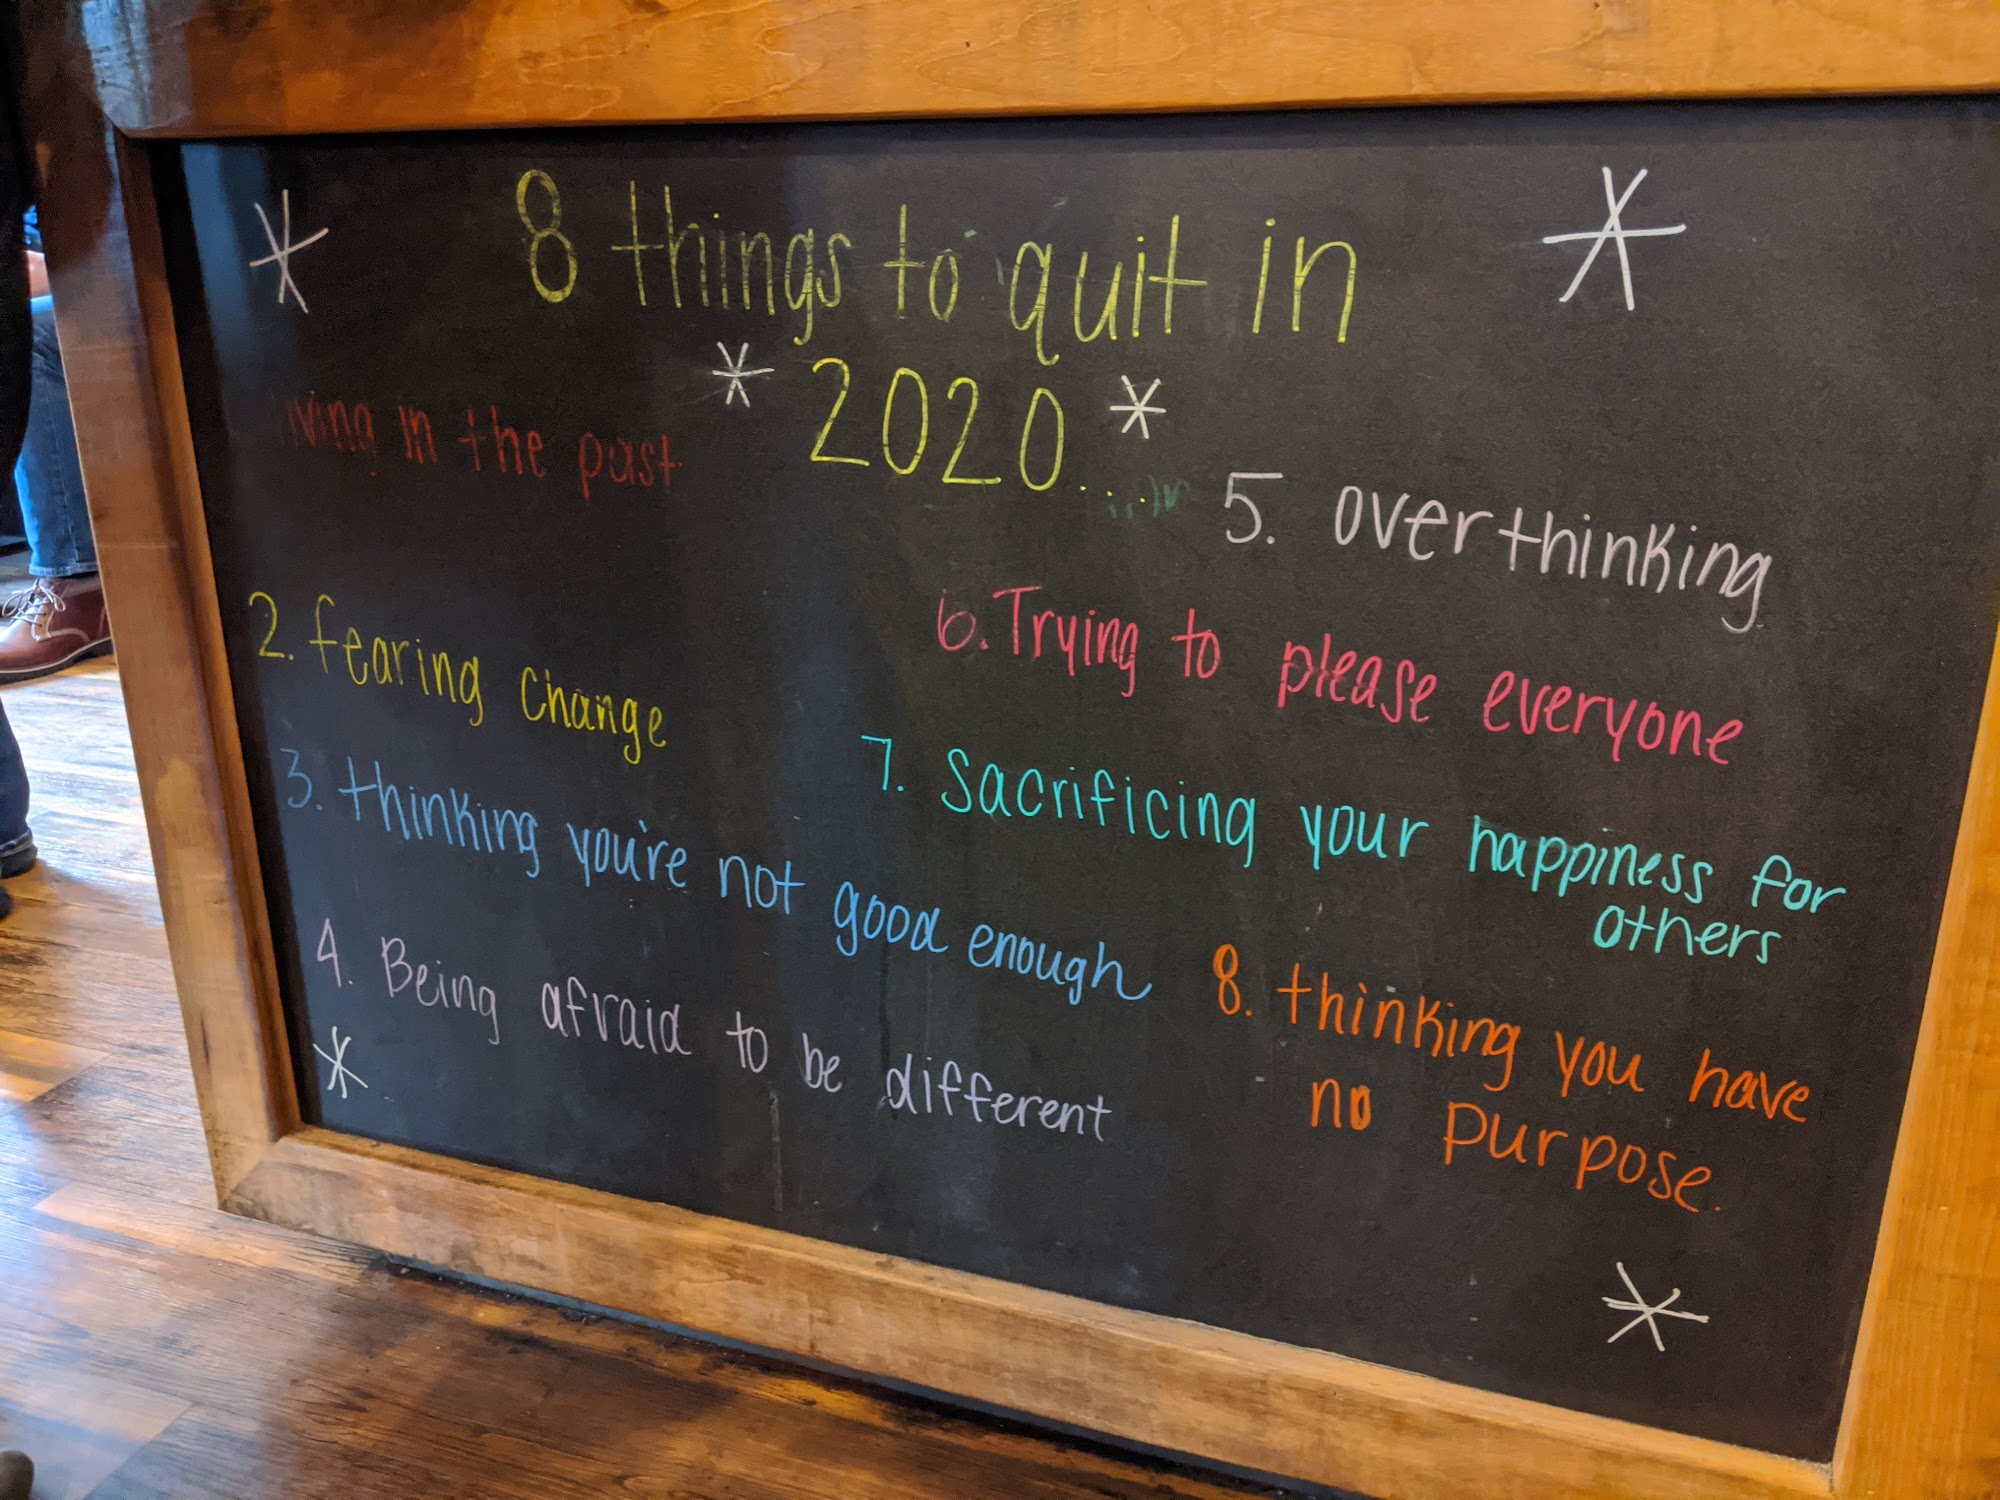 8 things to quit in
2020...
in the past
2. fearing change
3. thinking you're not good enough
4. Being afraid to be different
5. overthinking
6. Trying to please everyone
7. Sacrificing your happiness for
others
8. thinking you have
no purpose.